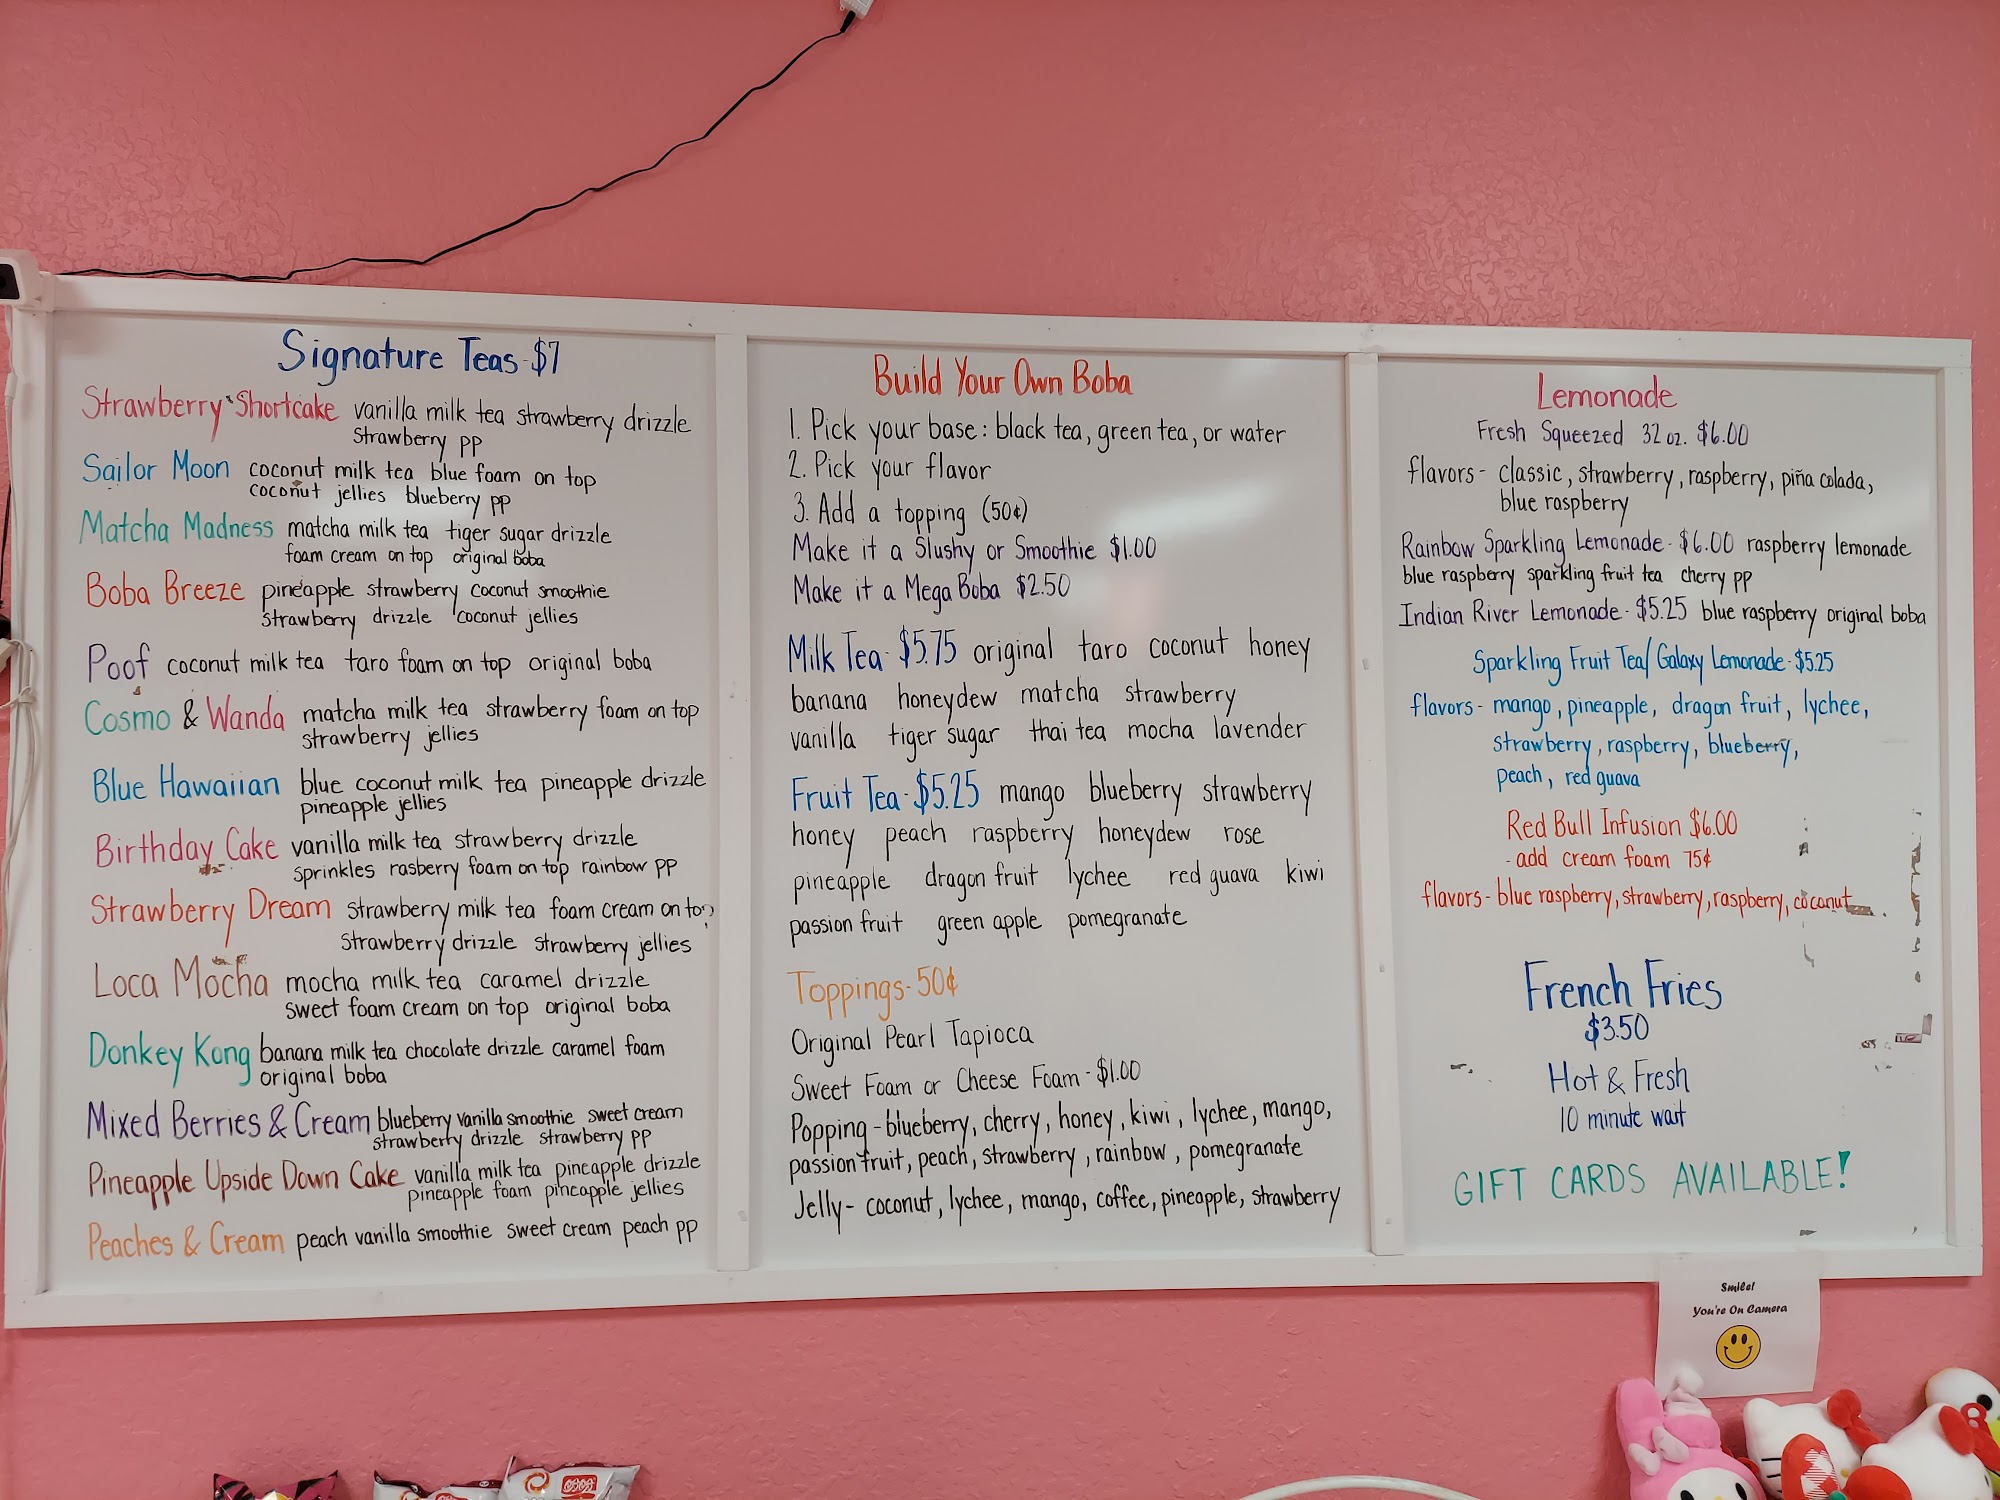 Signature Teas-$7
Strawberry Shortcake vanilla milk tea strawberry drizzle
strawberry pp
Sailor Moon coconut milk tea blue foam on top
coconut jellies blueberry pp
Matcha Madness matcha milk tea tiger sugar drizzle
foam cream on top original boba
Boba Breeze pineapple strawberry coconut smoothie
strawberry drizzle coconut jellies
Poof coconut milk tea taro foam on top original boba
Cosmo & Wanda matcha milk tea strawberry foam on top
strawberry jellies
Blue Hawaiian blue coconut milk tea pineapple drizzle
pineapple jellies
Birthday Cake vanilla milk tea strawberry drizzle
sprinkles rasberry foam on top rainbow pp
Strawberry Dream strawberry milk tea foam cream on top
strawberry drizzle strawberry jellies
Loca Mocha mocha milk tea caramel drizzle
sweet foam cream on top original boba
Donkey Kong banana milk tea chocolate drizzle caramel foam
original boba
Mixed Berries & Cream blueberry vanilla smoothie sweet cream
strawberry drizzle strawberry pp
Pineapple Upside Down Cake vanilla milk tea pineapple drizzle
pineapple foam pineapple jellies
Peaches & Cream peach vanilla smoothie sweet cream peach pp
Build Your Own Boba
1. Pick your base: black tea, green tea, or water
2. Pick your flavor
3. Add a topping (50¢)
Make it a Slushy or Smoothie $1.00
Make it a Mega Boba $2.50
Milk Tea-$5.75 original taro coconut honey
banana honeydew matcha strawberry
vanilla tiger sugar thai tea mocha lavender
Fruit Tea-$5.25 mango blueberry strawberry
honey peach raspberry honeydew rose
pineapple dragon fruit lychee red guava kiwi
passion fruit green apple pomegranate
Toppings-50¢
Original Pearl Tapioca
Sweet Foam or Cheese Foam-$1.00
Popping-blueberry, cherry, honey, kiwi, lychee, mango,
passion fruit, peach, strawberry, rainbow, pomegranate
Jelly-coconut, lychee, mango, coffee, pineapple, strawberry
Lemonade
Fresh Squeezed 32 oz. $6.00
flavors- classic, strawberry, raspberry, piña colada,
blue raspberry
Rainbow Sparkling Lemonade-$6.00 raspberry lemonade
blue raspberry sparkling fruit tea cherry pp
Indian River Lemonade-$5.25 blue raspberry original boba
Sparkling Fruit Tea/Galaxy Lemonade-$5.25
flavors- mango, pineapple, dragon fruit, lychee,
strawberry, raspberry, blueberry,
peach, red guava
Red Bull Infusion $6.00
-add cream foam 75¢
flavors-blue raspberry, strawberry, raspberry, coconut
French Fries
$3.50
Hot & Fresh
10 minute wait
GIFT CARDS AVAILABLE!
Smile!
You're On Camera